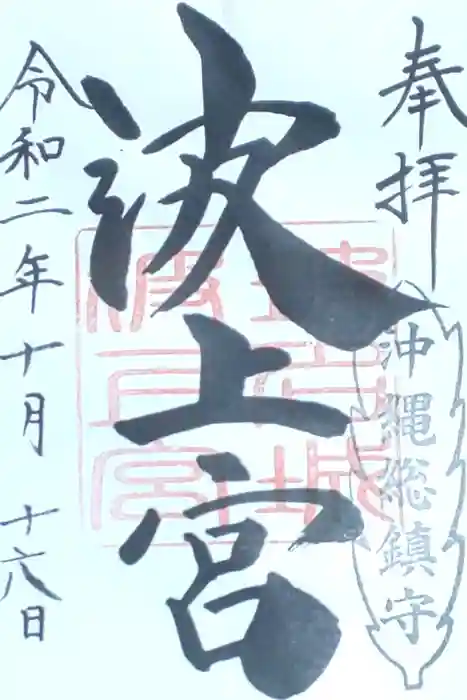 奉拝
沖縄総鎮守
波上宮
令和二年十月十六日